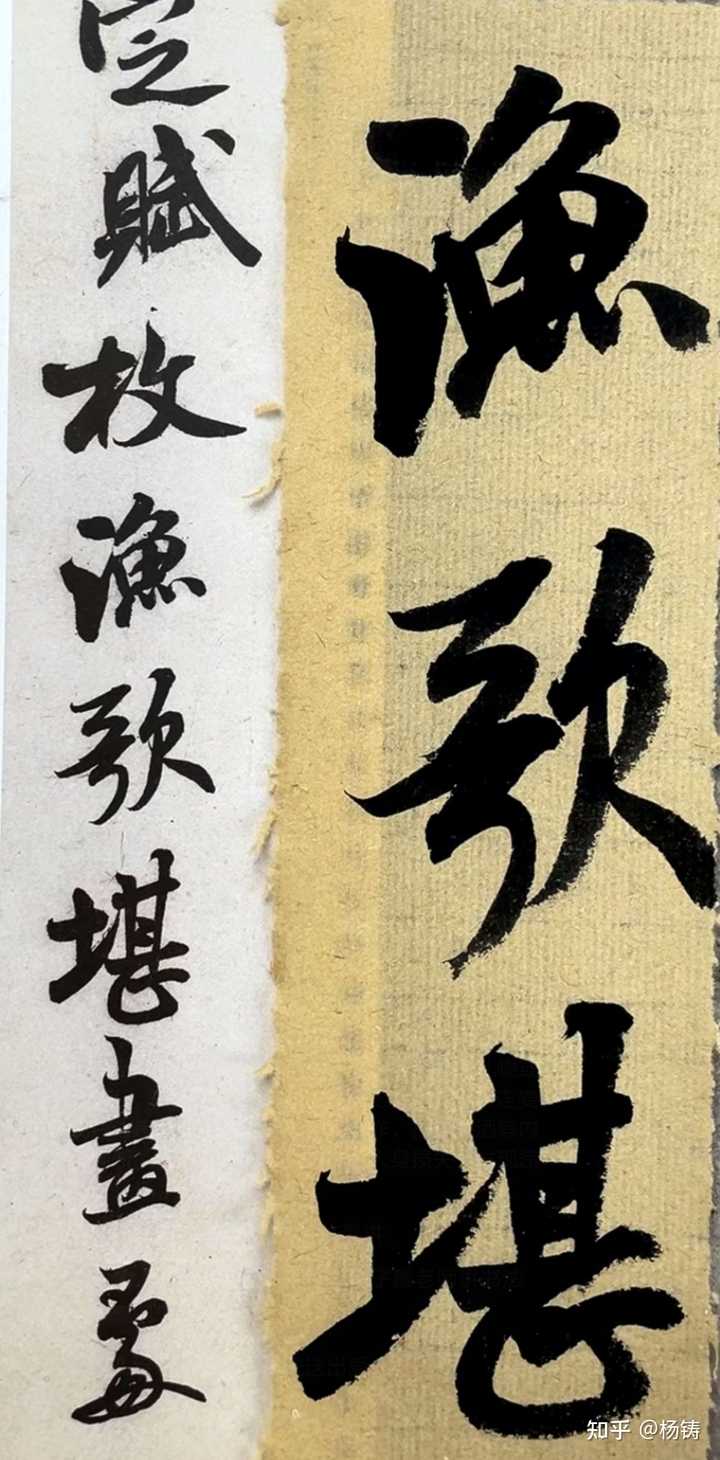 漁歌堪
定賦枚漁歌堪畫處
知乎 @杨铸